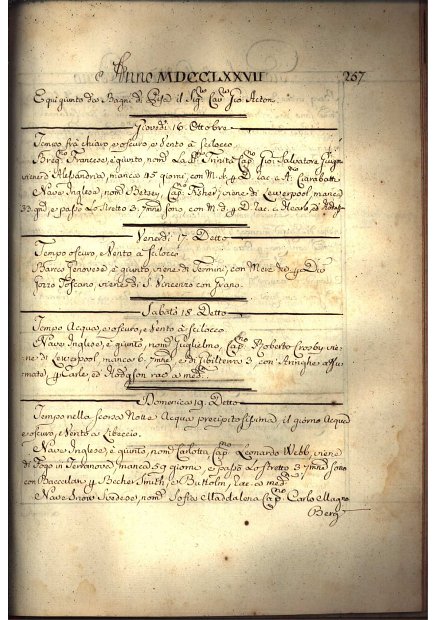 Anno MDCCLXXVII 257
E qui giunto da Bagni di Pisa il Sig.re Cav.re Gio. Acton.
Giovedì 16. Ottobre
Tempo frà chiaro, e oscuro, e Vento à Scilocco.
Brig.no Francese, è giunto, nom.o La SS. Trinità Cap.no Gio: Salvatore
viene di Alessandria, manca 35 giorni, con M. d. 4 D. Rac. a
Nave Inglese, nom.a Betsey, Cap.no Fisher, viene di Liverpool, manca
33 gni, e passò Lo Stretto 3. 7mne sono, con M. d. 4 D. Rac. a
Venerdì 17. Detto
Tempo oscuro, e Vento à Scilocco
Barco Genovese è giunto, viene di Termini, con Merc.
Gozzo Toscano, viene di S. Vincenzo con Grano.
Sabato 18. Detto
Tempo Acqua, e oscuro, e Vento à Scilocco.
Nave Inglese, è giunto, nom.a Guglielmo, Cap.no Roberto Crosby vie-
ne di Liverpool, manca 6. 7mne, e di Gibilterra 3, con Aringhe affu-
mate, 4 Earle, ed Hodgson rac. a med.mi
Domenica 19. Detto
Tempo nella scorsa Notte Acqua precipitosissima, il giorno Acqua
e oscuro, e Vento a Libeccio.
Nave Inglese, è giunto, nom.a Carlotta Cap.no Leonardo Webb, viene
di Fogo in Terranova, manca 39 giorni, e passò Lo Stretto 3 7mne sono
con Baccalari, 4 Becher Smith, e Rac. a med.mi
Nave Snow Svedese, nom.a Sofia Maddalena Cap.no Carlo Magno
Berg